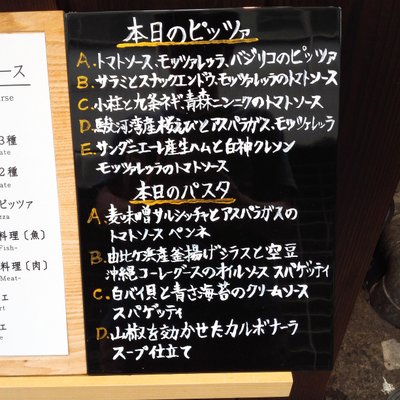 ース
rse
3種
ate
2種
ate
ピッツァ
zza
料理〔魚〕
Fish-
料理〔肉〕
Meat-
ェ
rt
ェ
e
本日のピッツァ
A. トマトソース、モッツァレッラ、バジリコのピッツァ
B. サラミとスナックエンドウ、モッツァレッラのトマトソース
C. 小柱と九条ネギ、青森ニンニクのトマトソース
D. 駿河湾産桜えびとアスパラガス、モッツァレッラ
E. サンダニエーレ産生ハムと白神クレソン
モッツァレッラのトマトソース
本日のパスタ
A. 麦味噌サルシッチャとアスパラガスの
トマトソース ペンネ
B. 由比ケ浜産釜揚げシラスと空豆
沖縄コーレーグースのオイルソース スパゲッティ
C. 白バイ貝と青さ海苔のクリームソース
スパゲッティ
D. 山椒を効かせたカルボナーラ
スープ仕立て